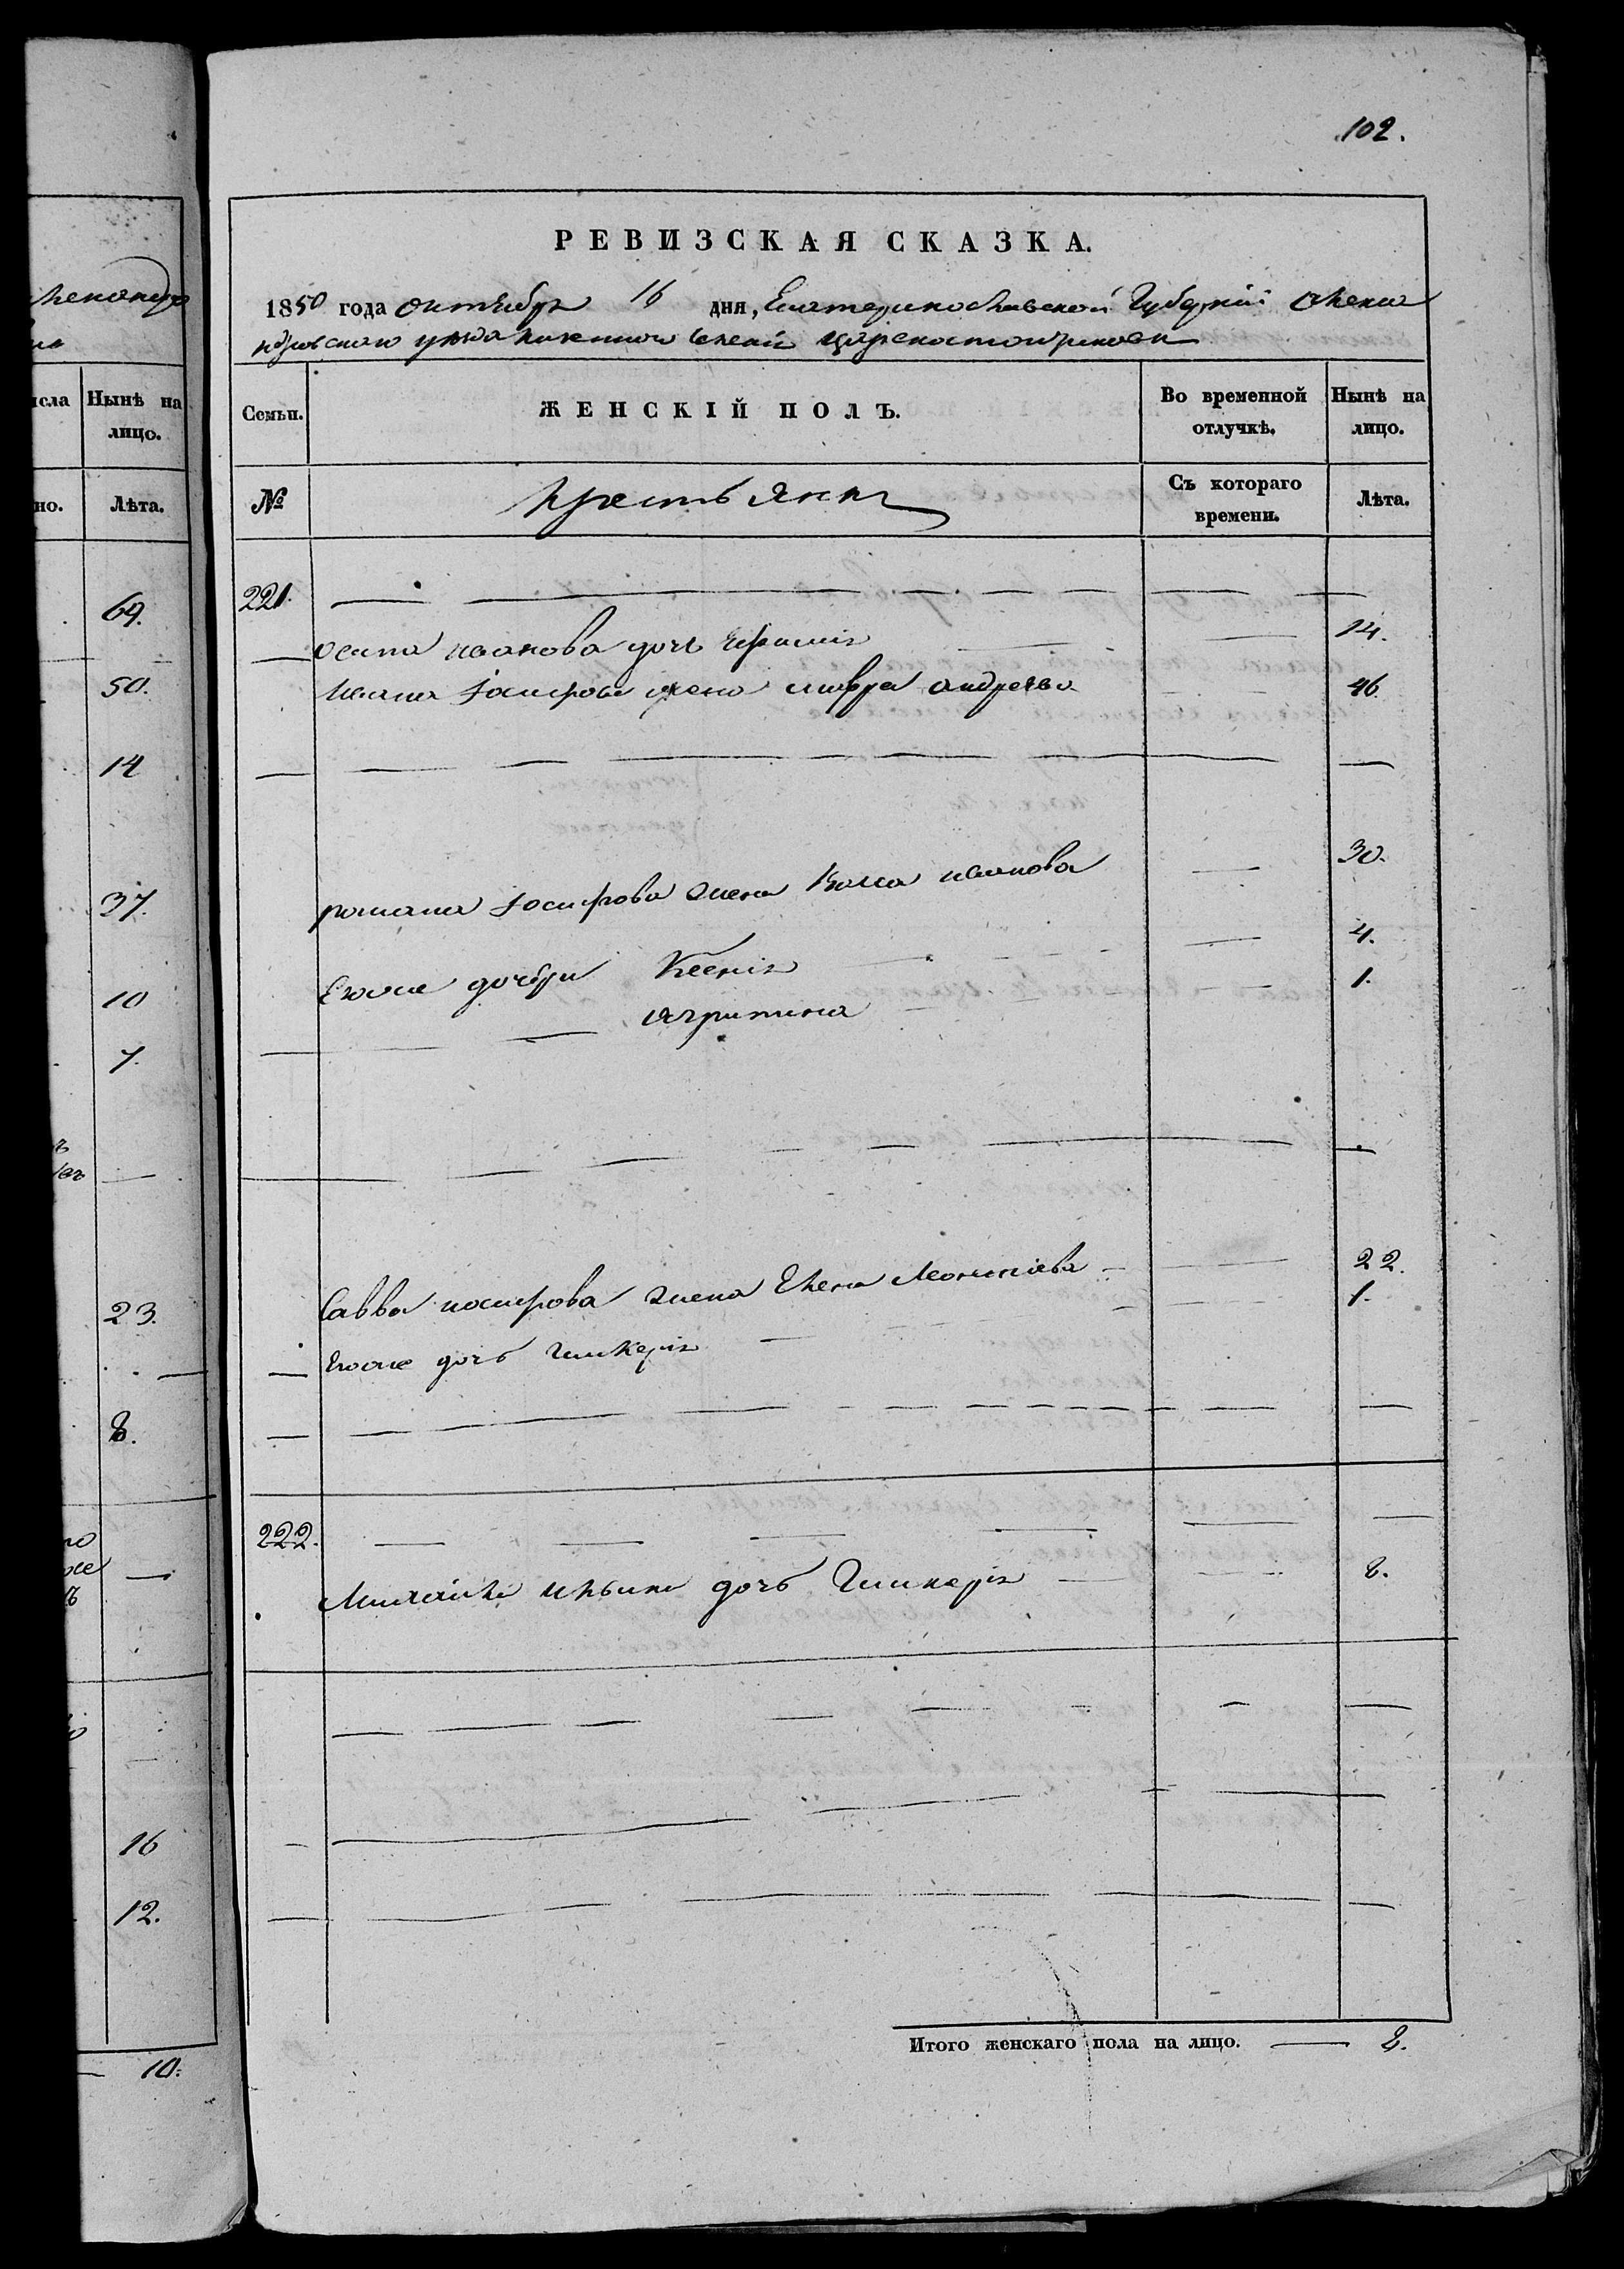 102.
РЕВИЗСКАЯ СКАЗКА.
1850 года октября 16 дня, Екатеринославской Губернии Алекса
ндровского уезда казенного селения Царекостантиновки
Семьи.
ЖЕНСКІЙ ПОЛЪ.
Во временной отлучкѣ.
Нынѣ на лицо.
№
Крестьяне
Съ котораго времени.
Лѣта.
221.
Осипа Иванова дочь 14.
Ивана жена Андреева 46.
Романа жена Иванова 30.
Евоие дочери Ксения 4.
Агрипина 1.
Савва жена Елена Леонтиева 22.
Евоие дочь Гликерия 1.
222.
дочь Гликерия 8.
Итого женскаго пола на лицо. 8.
Нынѣ на лицо.
но. Лѣта.
69.
50.
14
37.
10
7.
23.
8.
16
12.
10.